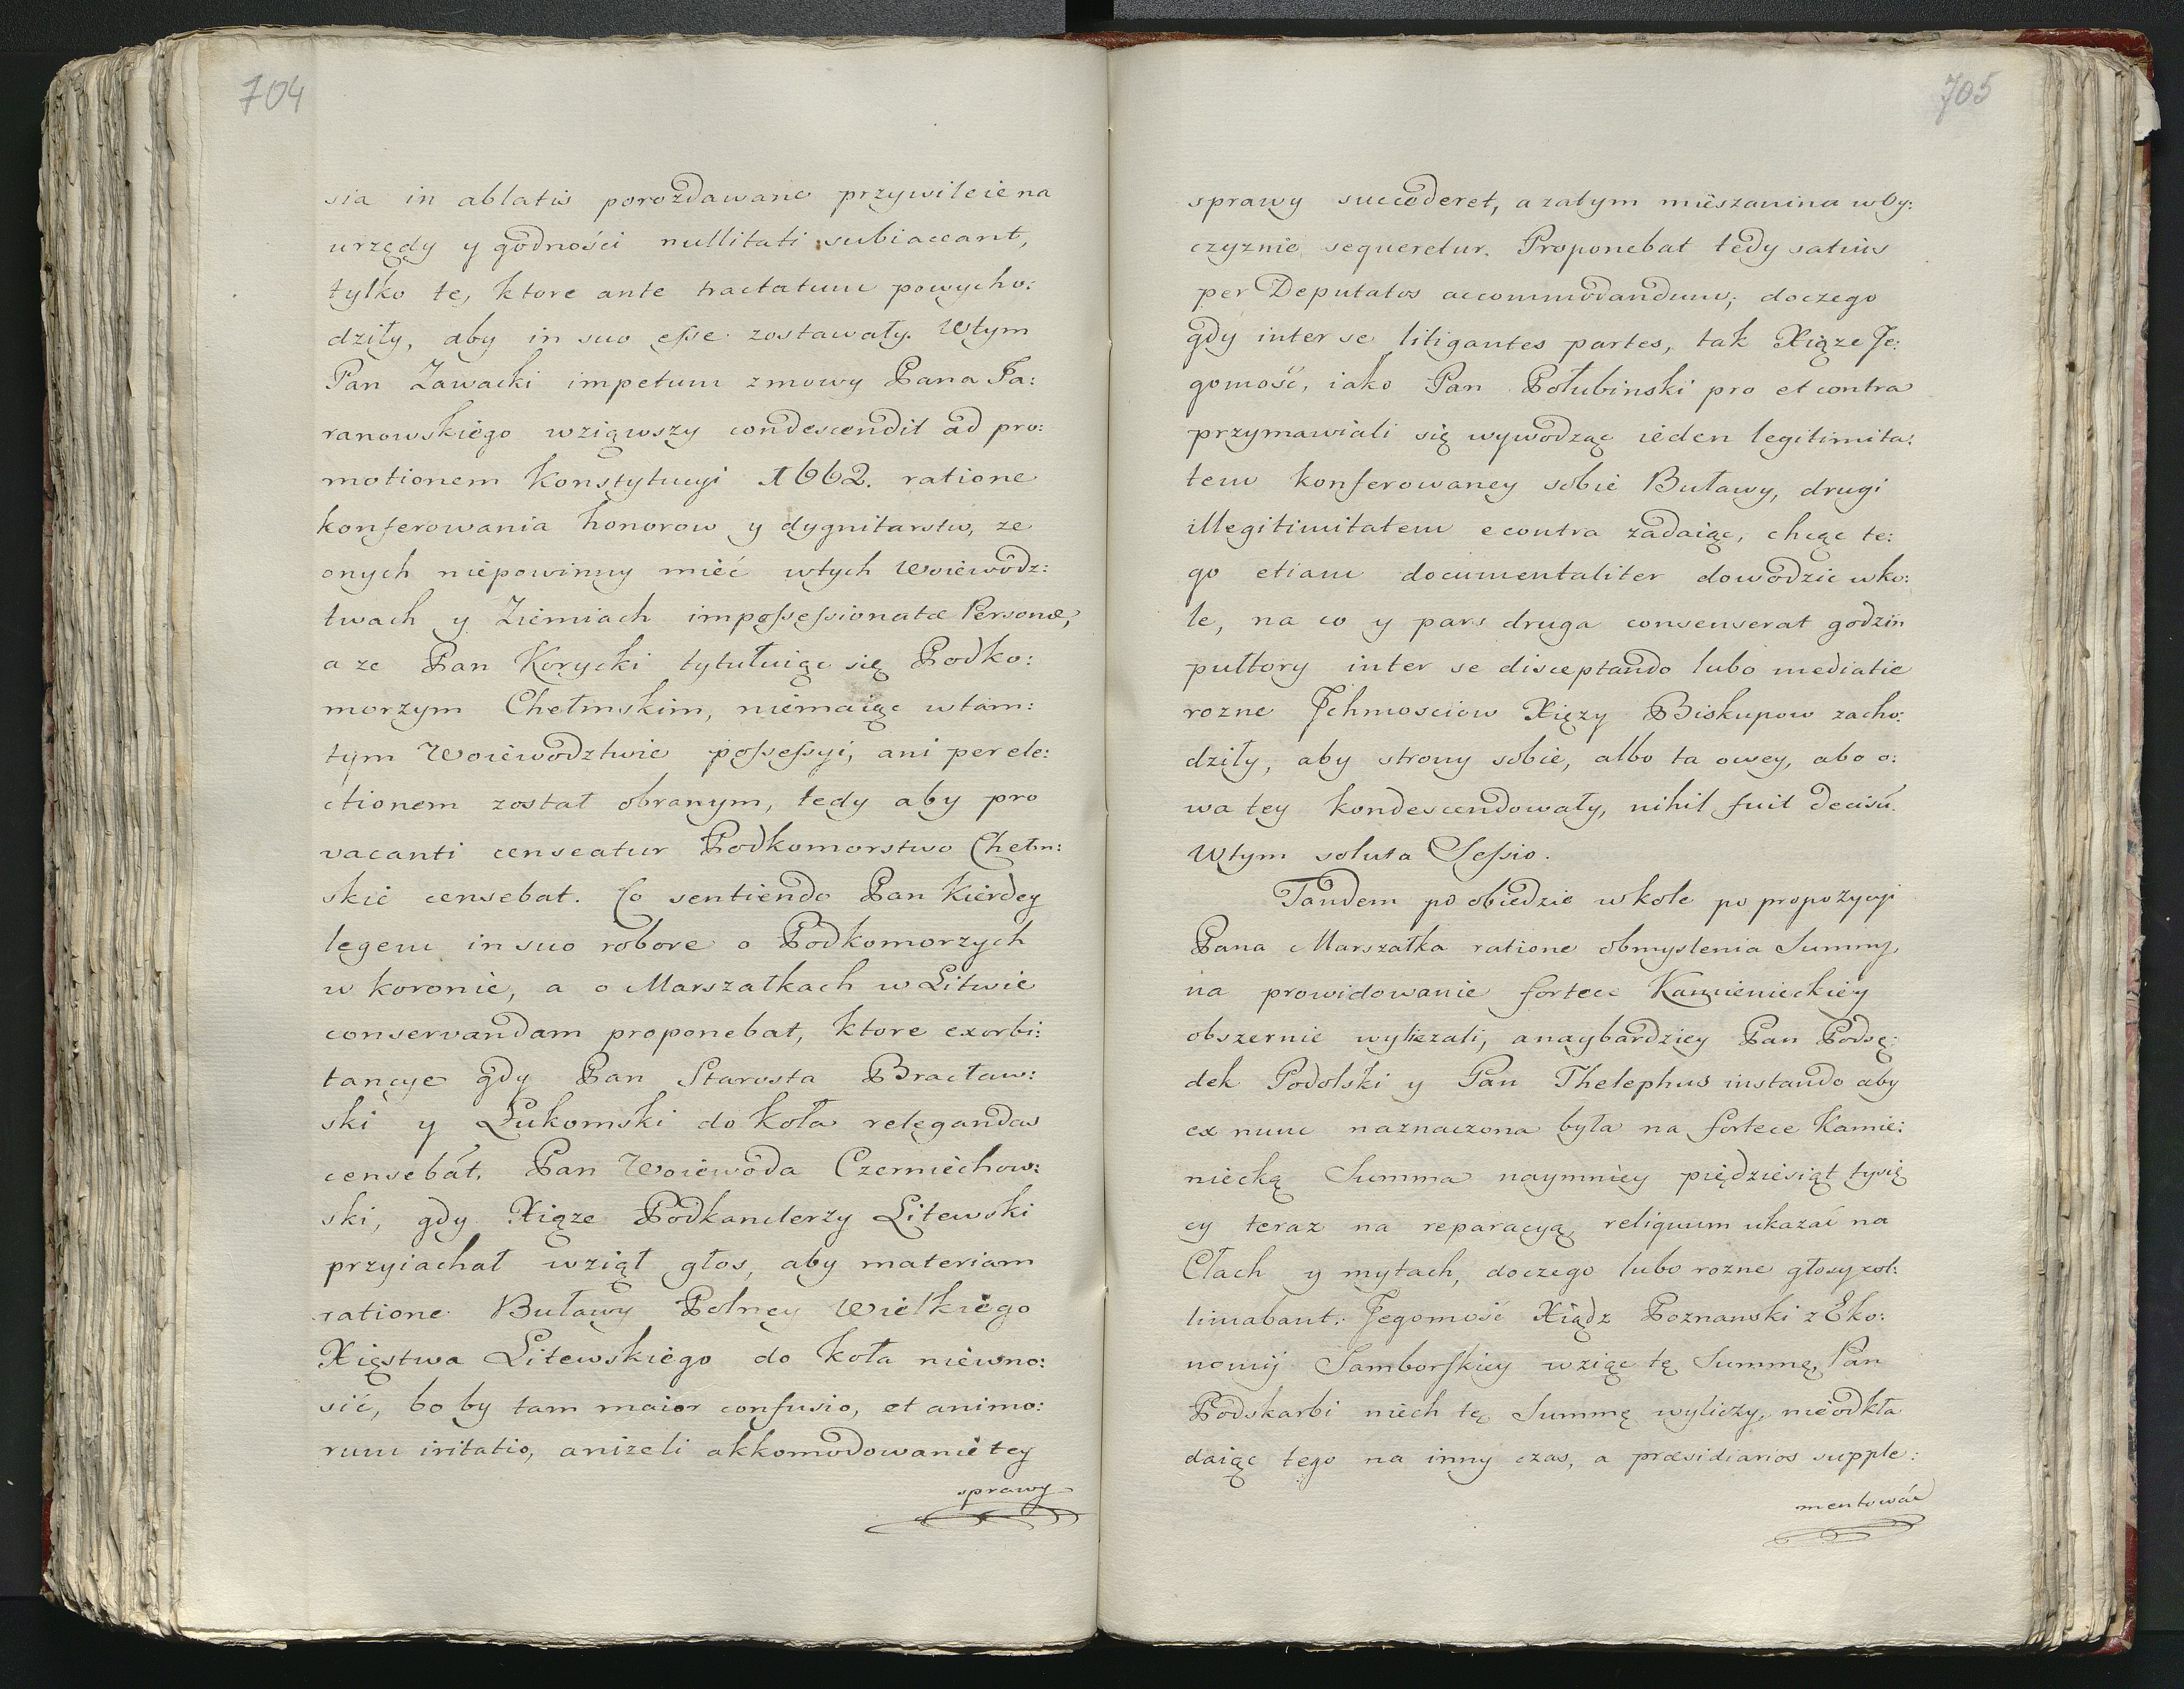 704
sia in ablatis porozdawane przywileie na
urzędy y godności nullitati subiaceant,
tylko te, ktore ante tractatum powycho:
dziły, aby in suo esse zostawały. Wtym
Pan Zawacki impetum zmowy Pana Ta:
ranowskiego wziąwszy condescendit ad pro:
motionem Konstytucyi 1662. ratione
konferowania honorow y dygnitarstw, ze
onych niepowinny mieć wtych Woiewodz:
twach y Ziemiach impossessionatæ Personæ,
a ze Pan Korycki tytułuiąc się Podko:
morzym Chełmskim, niemaiąc wtam:
tym Woiewodztwie possessyi, ani per ele:
ctionem został obranym, tedy aby pro
vacanti censeatur Podkomorstwo Chełm:
skie censebat. Co sentiendo Pan Kierdey
legem in suo robore o Podkomorzych
w koronie, a o Marszałkach w Litwie
conservandam proponebat, ktore exorbi:
tancye gdy Pan Starosta Bracław:
ski y Łukomski do koła relegandas
censebat, Pan Woiewoda Czerniechow:
ski, gdy Xiąze Podkanclerzy Litewski
przyiachał wziął głos, aby materiam
ratione Buławy Polney Wielkiego
Xięstwa Litewskiego do koła niewno:
sić, bo by tam maior confusio, et animo:
rum iritatio, aniżeli akkomodowanie tey
sprawy
705
sprawy succederet, a zatym mieszanina w Oy:
czyznie sequeretur. Proponebat tedy satius
per Deputatos accommodandum; doczego
gdy inter se litigantes partes, tak Xiąze Je:
gomość, iako Pan Połubinski pro et contra
przymawiali się wywodząc ieden legitimita:
tem konferowaney sobie Buławy, drugi
illegitimitatem econtra zadaiąc, chcąc te:
go etiam documentaliter dowodzic wko:
le, na co y pars druga consenserat godzin
pułtory inter se disceptando lubo mediatie
rozne Jchmosciow Xięzy Biskupow zacho:
dziły, aby strony sobie, albo ta owey, abo o:
wa tey kondescendowały, nihil fuit decisũ.
Wtym soluta Sessio.
Tandem po obiedzie w kole po propozycyi
Pana Marszałka ratione obmyslenia Summy,
na prowidowanie fortece Kamienieckiey
obszernie wyliczali, anaybardziey Pan Podsę:
dek Podolski y Pan Thelephus instando aby
ex nunc naznaczona była na fortece Kamie:
niecką Summa naymniey pięćdziesiąt tysię
cy teraz na reparacyą, reliquum ukazać na
Cłach y mytach, doczego lubo rozne głosy col:
limabant: Jegomość Xiądz Poznanski z Eko:
nomij Samborskiey wziąc tę Summę, Pan
Podskarbi niech tę Summę wyliczy, nieodkła
daiąc tego na inny czas, a præsidiarios supple:
mentowác